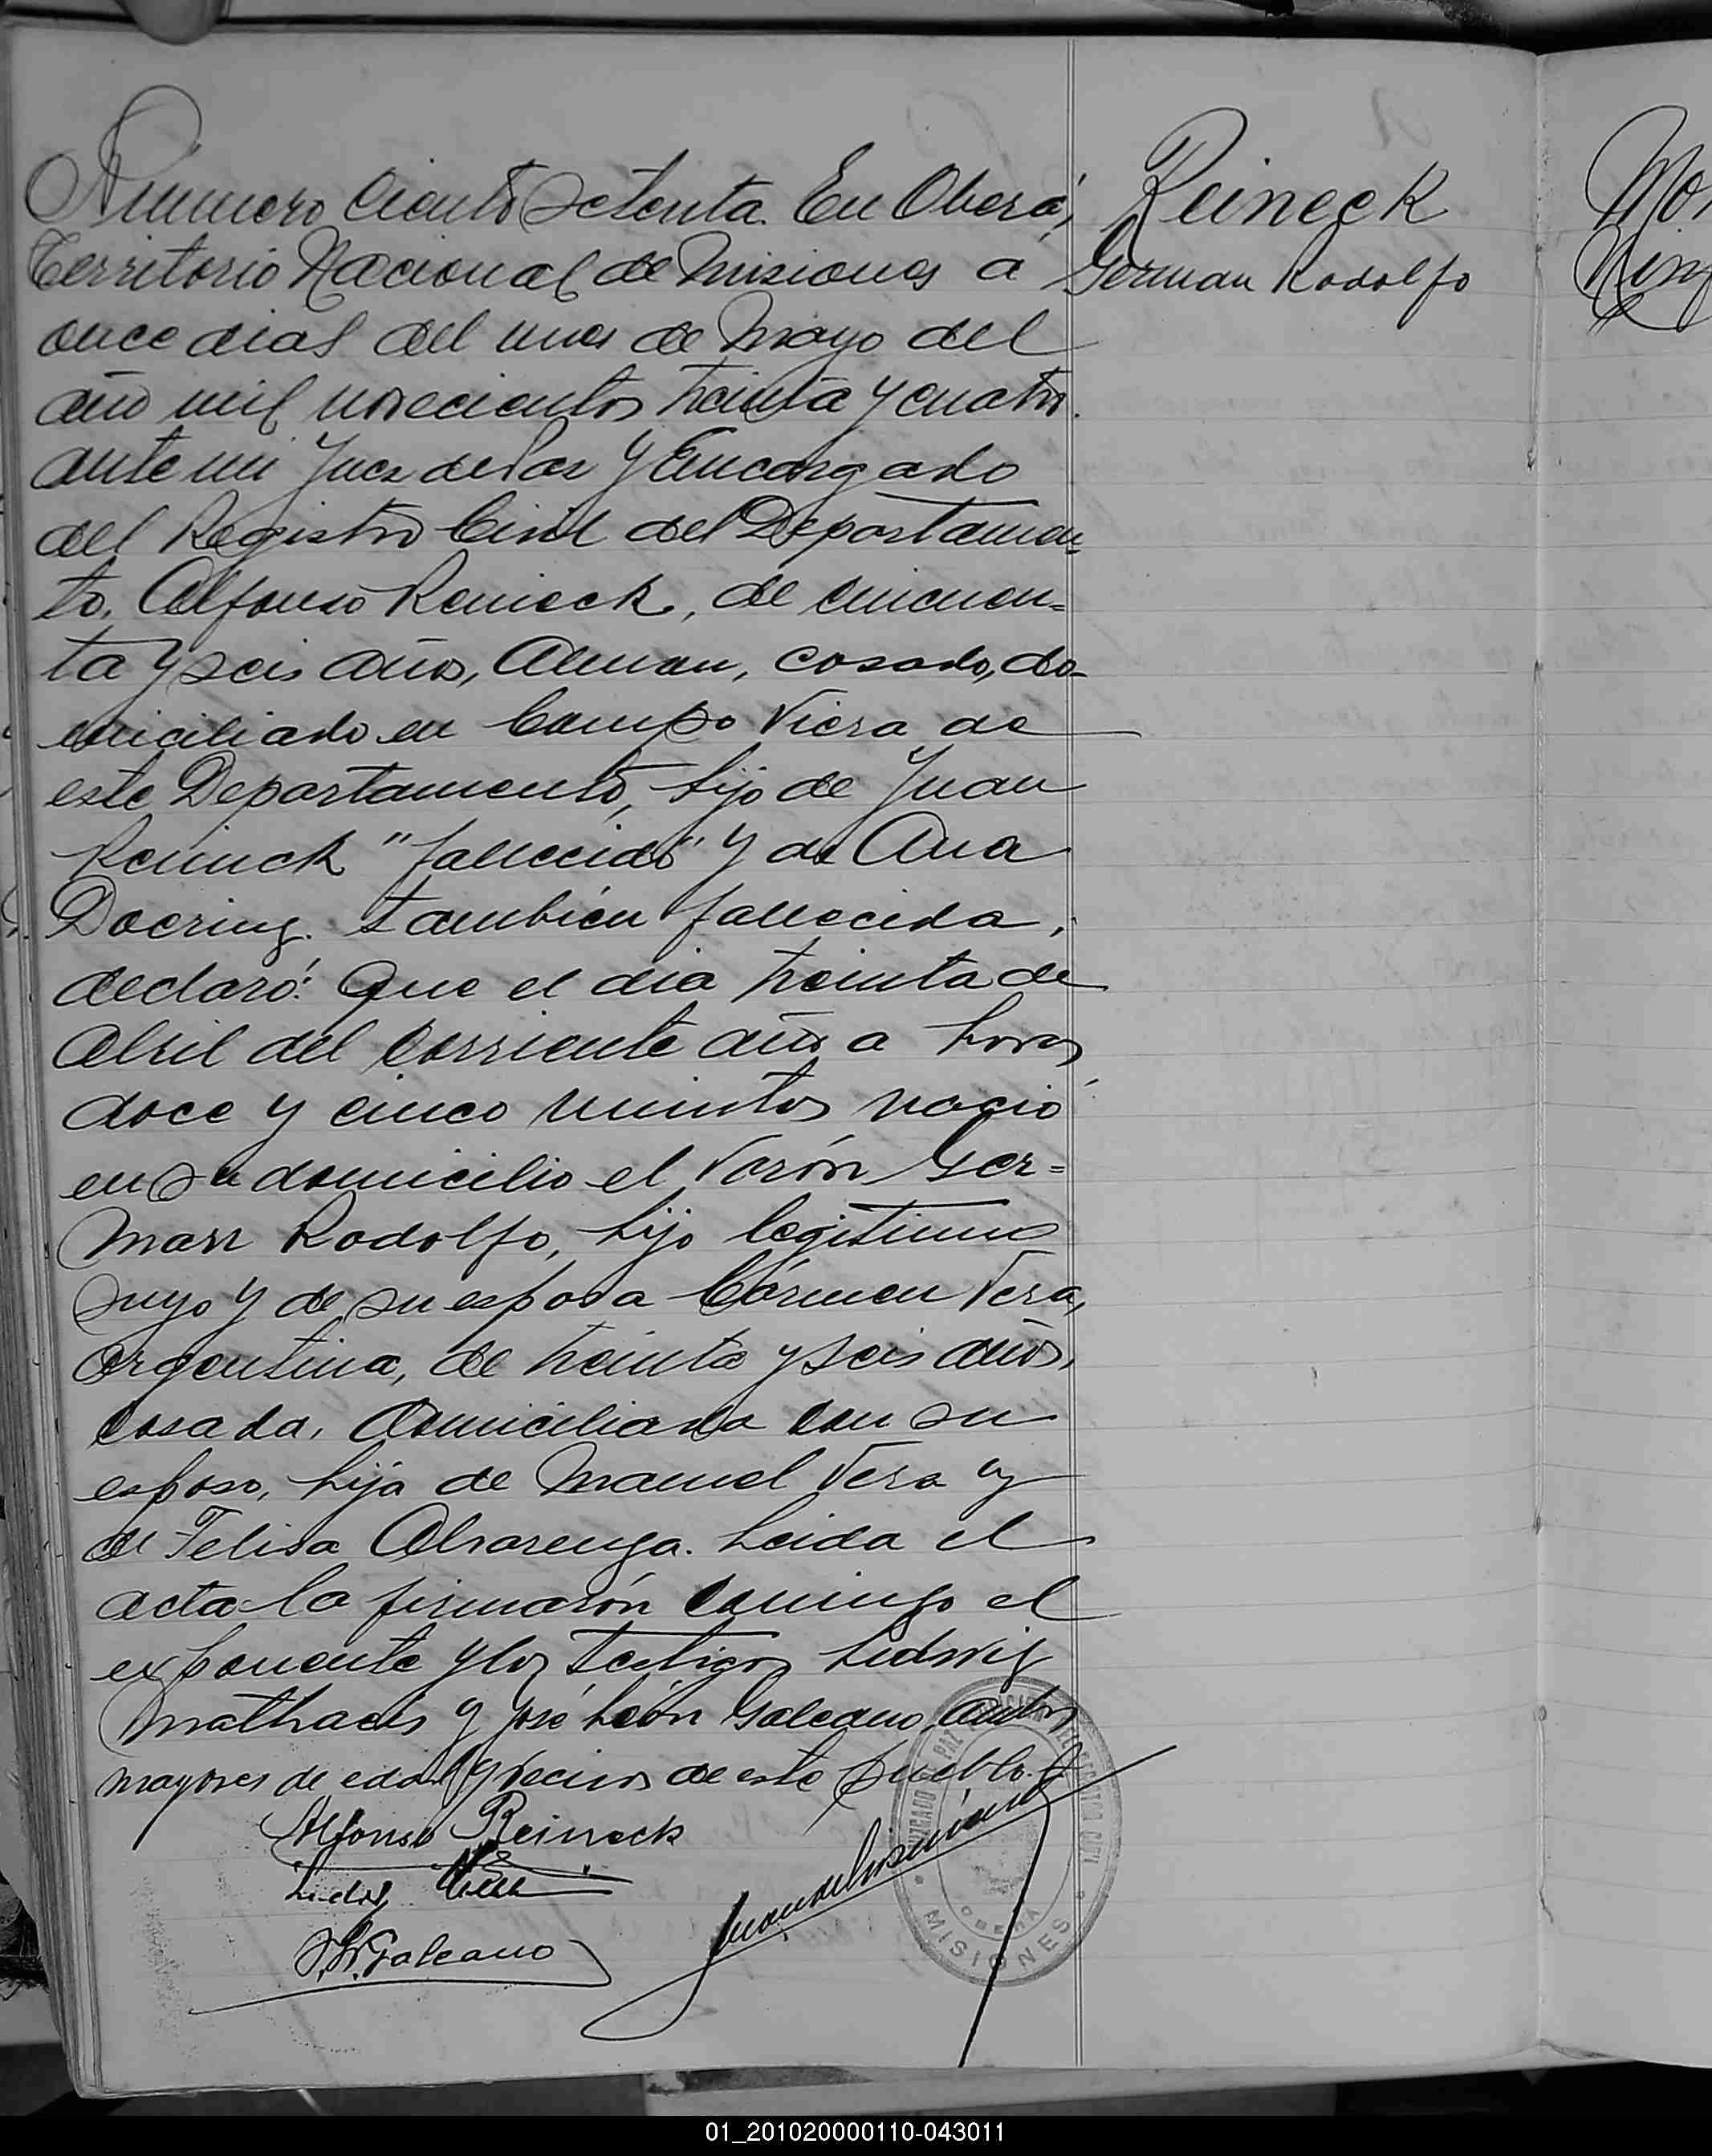 Numero Ciento Setenta. En Oberá,
Territorio Nacional de Misiones a
once dias del mes de Mayo del
año mil novecientos treinta y cuatro.
ante mi Juez de Paz y Encargado
del Registro Civil del Departamen=
to, Alfonso Reineck, de cincuen=
ta y seis años, Aleman, casado, do-
miciliado en Campo Viera de
este Departamento, hijo de Juan
Reineck "fallecido" y de Ana
Doering. también fallecida,
declaró: Que el dia treinta de
Abril del corriente año a horas
doce y cinco minutos nació
en su domicilio el varón Ger=
man Rodolfo, hijo legitimo
suyo y de su esposa Cármen Vera,
argentina, de treinta y seis años,
casada, domiciliada con su
esposo, hija de Manuel Vera y
de Felisa Alvarenga. Leida el
acta la firmarón conmigo el
exponente y los testigos Ludwig
Mathaeis y José León Galeano, ambos
mayores de edad y vecinos de este pueblo.
Alfonso Reineck
Ludwig
J. L. Galeano
JUZGADO DE PAZ
REGISTRO CIVIL
OBERÁ
MISIONES
Reineck
German Rodolfo
01_201020000110-043011